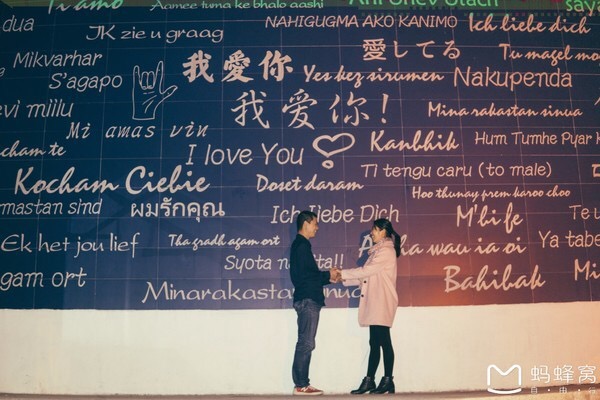 Ti amo
Aamee tuma ke bhalo aashi
saya
dua
JK zie u graag
NAHIGUGMA AKO KANIMO
Ich liebe dich
Mikvarhar
我爱你
愛してる
Tu magel mo
S'agapo
Yes kez sirumen
Nakupenda
evi miilu
我爱你!
Mina rakastan sinua
Mi amas vin
Kanbhik
Hum Tumhe Pyar K
cham te
I love You
Ti tengu caru (to male)
Kocham Ciebie
Doset daram
Hoo thunay prem karoo choo
mastan sind
ผมรักคุณ
Ich liebe Dich
M'bi fe
Te u
Ek het jou lief
Tha gradh agam ort
wau ia oi
Ya tabe
Syota na
ta!!
gam ort
Minarakastan
inua
Bahibak
Mi
蚂蜂窝
自·由·行